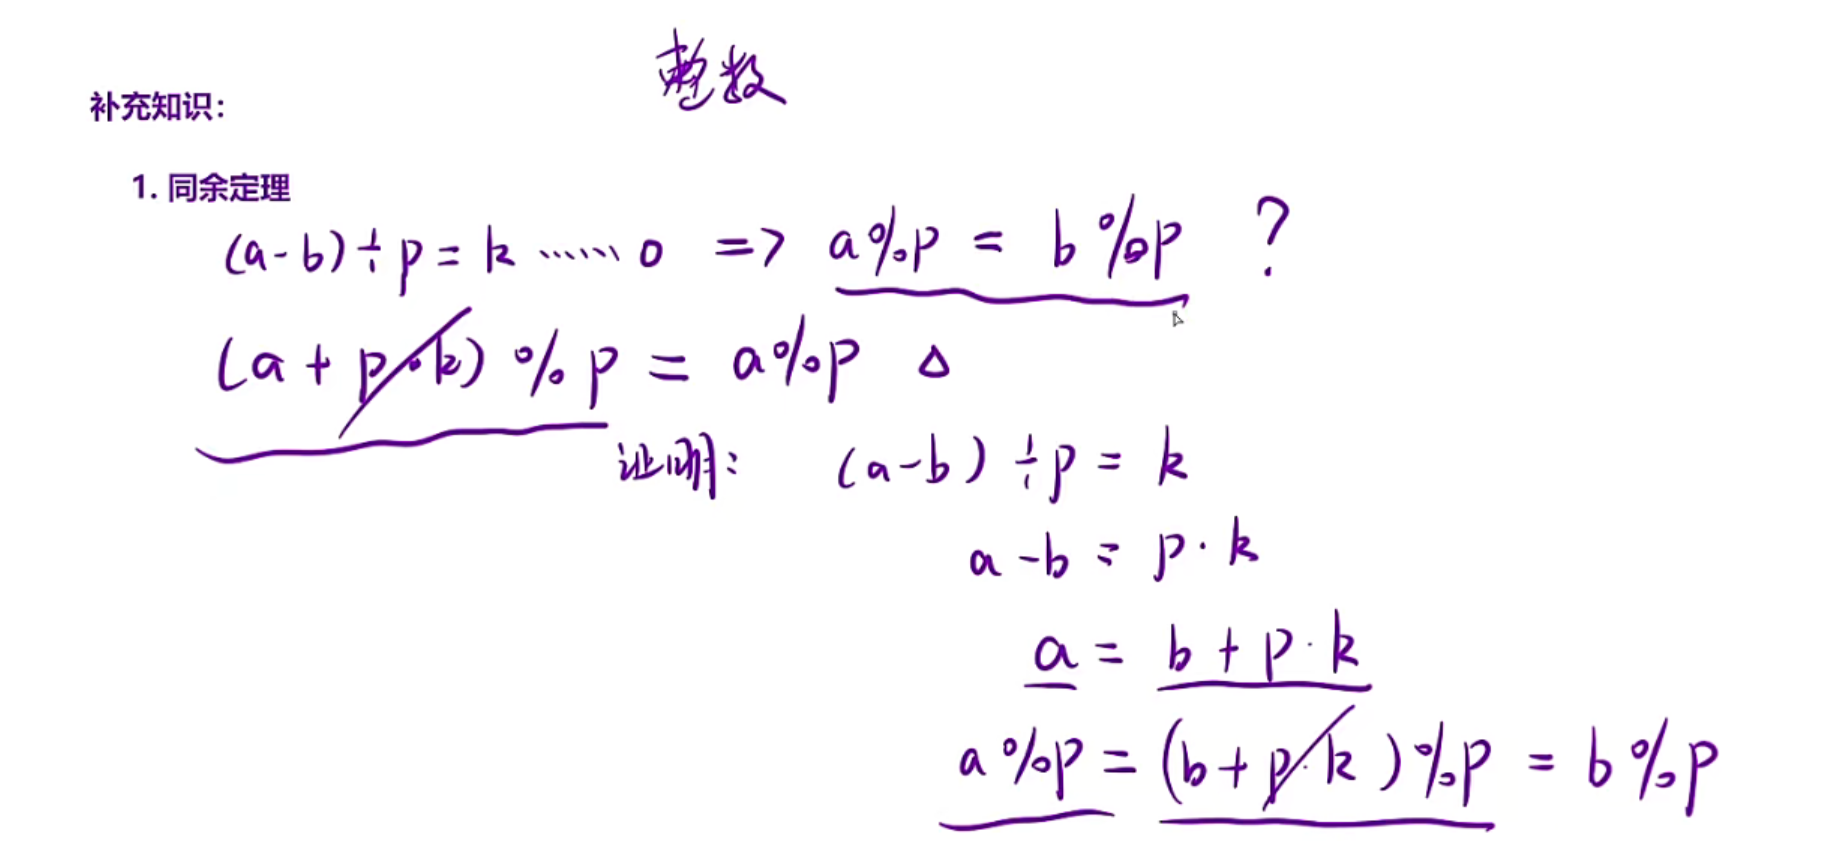 整数
补充知识：
1. 同余定理
(a-b)÷p=k……0 => a%p = b%p ?
(a+p·k)%p = a%p △
证明： (a-b)÷p = k
a-b = p·k
a = b+p·k
a%p = (b+p·k)%p = b%p